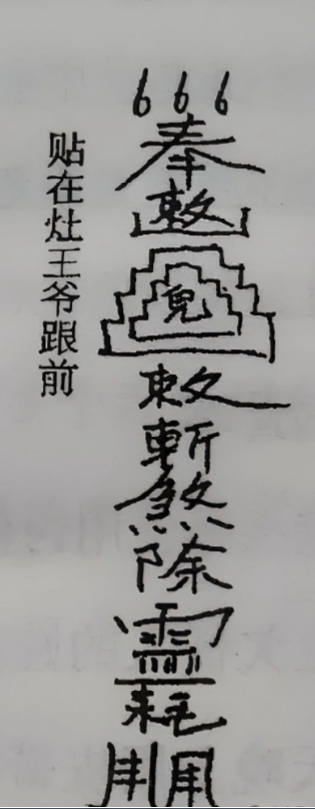 666
奉敕敕斬煞除耗
贴在灶王爷跟前